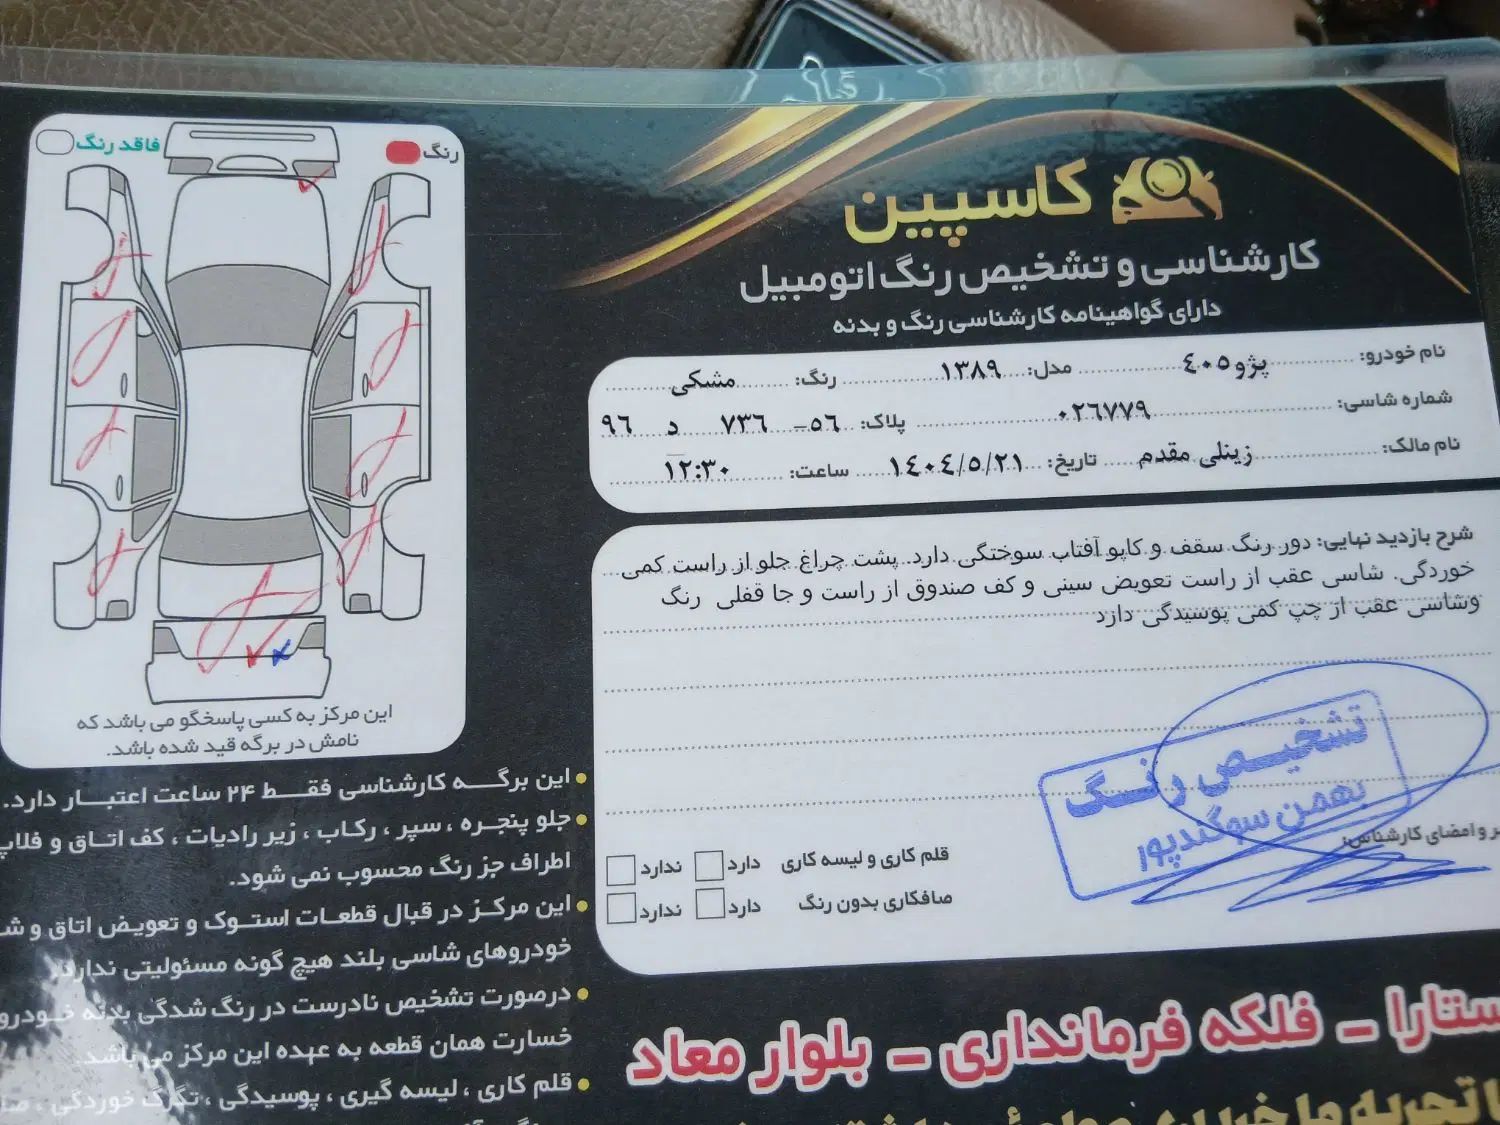 کاسپین
کارشناسی و تشخیص رنگ اتومبیل
دارای گواهینامه کارشناسی رنگ و بدنه
نام خودرو: پژو ۴۰۵ مدل: ۱۳۸۹ رنگ: مشکی
شماره شاسی: ۰۲۶۷۷۹ پلاک: ۵۶- ۷۳۶ د ۹۶
نام مالک: زینلی مقدم تاریخ: ۱۴۰۴/۵/۲۱ ساعت: ۱۲:۳۰
شرح بازدید نهایی: دور رنگ سقف و کاپو آفتاب سوختگی دارد. پشت چراغ جلو از راست کمی
خوردگی. شاسی عقب از راست تعویض سینی و کف صندوق از راست و جا قفلی رنگ
وشاسی عقب از چپ کمی پوسیدگی دارد
تشخیص رنگ
بهمن سوگندپور
ر و امضای کارشناس:
قلم کاری و لیسه کاری دارد ندارد
صافکاری بدون رنگ دارد ندارد
رنگ فاقد رنگ
این مرکز به کسی پاسخگو می باشد که
نامش در برگه قید شده باشد.
این برگه کارشناسی فقط ۲۴ ساعت اعتبار دارد.
جلو پنجره ، سپر ، رکاب ، زیر رادیات ، کف اتاق و فلاپ
اطراف جز رنگ محسوب نمی شود.
این مرکز در قبال قطعات استوک و تعویض اتاق و ش
خودروهای شاسی بلند هیچ گونه مسئولیتی ندارد.
درصورت تشخیص نادرست در رنگ شدگی بدنه خودرو
خسارت همان قطعه به عهده این مرکز می باشد.
قلم کاری ، لیسه گیری ، پوسیدگی ، تگرگ خوردگی ، صا
ستارا - فلکه فرمانداری - بلوار معاد